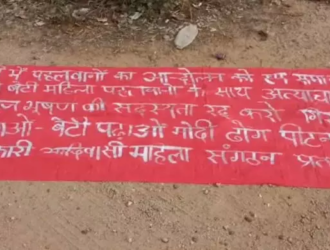 में पहलवानों का आन्दोलन को
बेटी महिला पहलवानों के साथ अत्याचा
भूषण की सदस्यता रद्द करो
ओ- बेटी पढ़ाओ मोदी ढोंग पीटन
कारी आदिवासी महिला संगठन